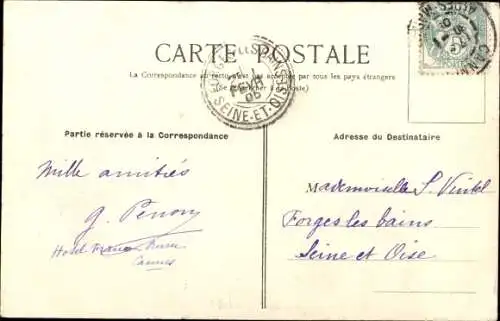 CARTE POSTALE
La Correspondance au recto n'est pas acceptée par tous les pays étrangers
(Se renseigner à la Poste)
FEVR
05
SEINE-ET-OISE
Partie réservée à la Correspondance
Adresse du Destinataire
Mille amitiés
Hotel
Cannes
Mademoiselle S.
Forges les bains
Seine et Oise